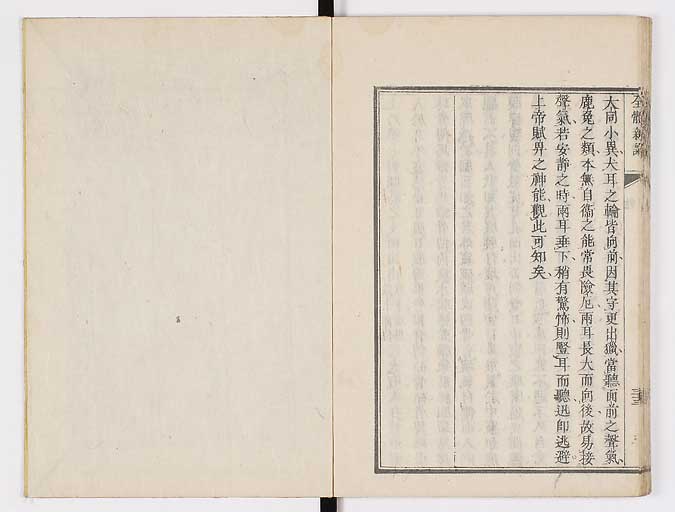 全體新論
大同小異、犬耳之輪皆向前、因其守更出獵、當聽面前之聲氣、
鹿兔之類、本無自衞之能、常畏險厄、兩耳長大而向後、故易接
聲氣、若安靜之時、兩耳垂下、稍有驚怖、則豎耳而聽、迅即逃避、
上帝賦畀之神能、觀此可知矣、